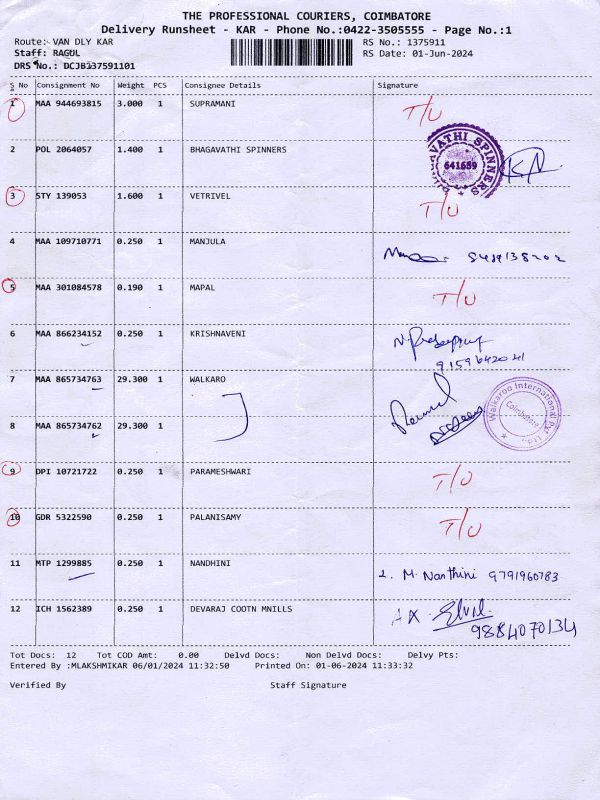 THE PROFESSIONAL COURIERS, COIMBATORE
Delivery Runsheet - KAR - Phone No.:0422-3505555 - Page No.:1
Route: VAN DLY KAR
RS No.: 1375911
Staff: RAGUL
RS Date: 01-Jun-2024
DRS No.: DCJB137591101
S No Consignment No Weight PCS Consignee Details Signature
1 MAA 944693815 3.000 1 SUPRAMANI T/U
2 POL 2064057 1.400 1 BHAGAVATHI SPINNERS
641659
3 STY 139053 1.600 1 VETRIVEL T/U
4 MAA 109710771 0.250 1 MANJULA
5 MAA 301084578 0.190 1 MAPAL T/U
6 MAA 866234152 0.250 1 KRISHNAVENI
9159642041
7 MAA 865734763 29.300 1 WALKARO
Walkaroo International Pv
Coimbatore
Ltd.,
8 MAA 865734762 29.300 1
9 DPI 10721722 0.250 1 PARAMESHWARI T/U
10 GDR 5322590 0.250 1 PALANISAMY T/U
11 MTP 1299885 0.250 1 NANDHINI M. Nanthini 9791960783
12 ICH 1562389 0.250 1 DEVARAJ COOTN MNILLS
9884070134
Tot Docs: 12 Tot COD Amt: 0.00 Delvd Docs: Non Delvd Docs: Delvy Pts:
Entered By :MLAKSHMIKAR 06/01/2024 11:32:50 Printed On: 01-06-2024 11:33:32
Verified By Staff Signature